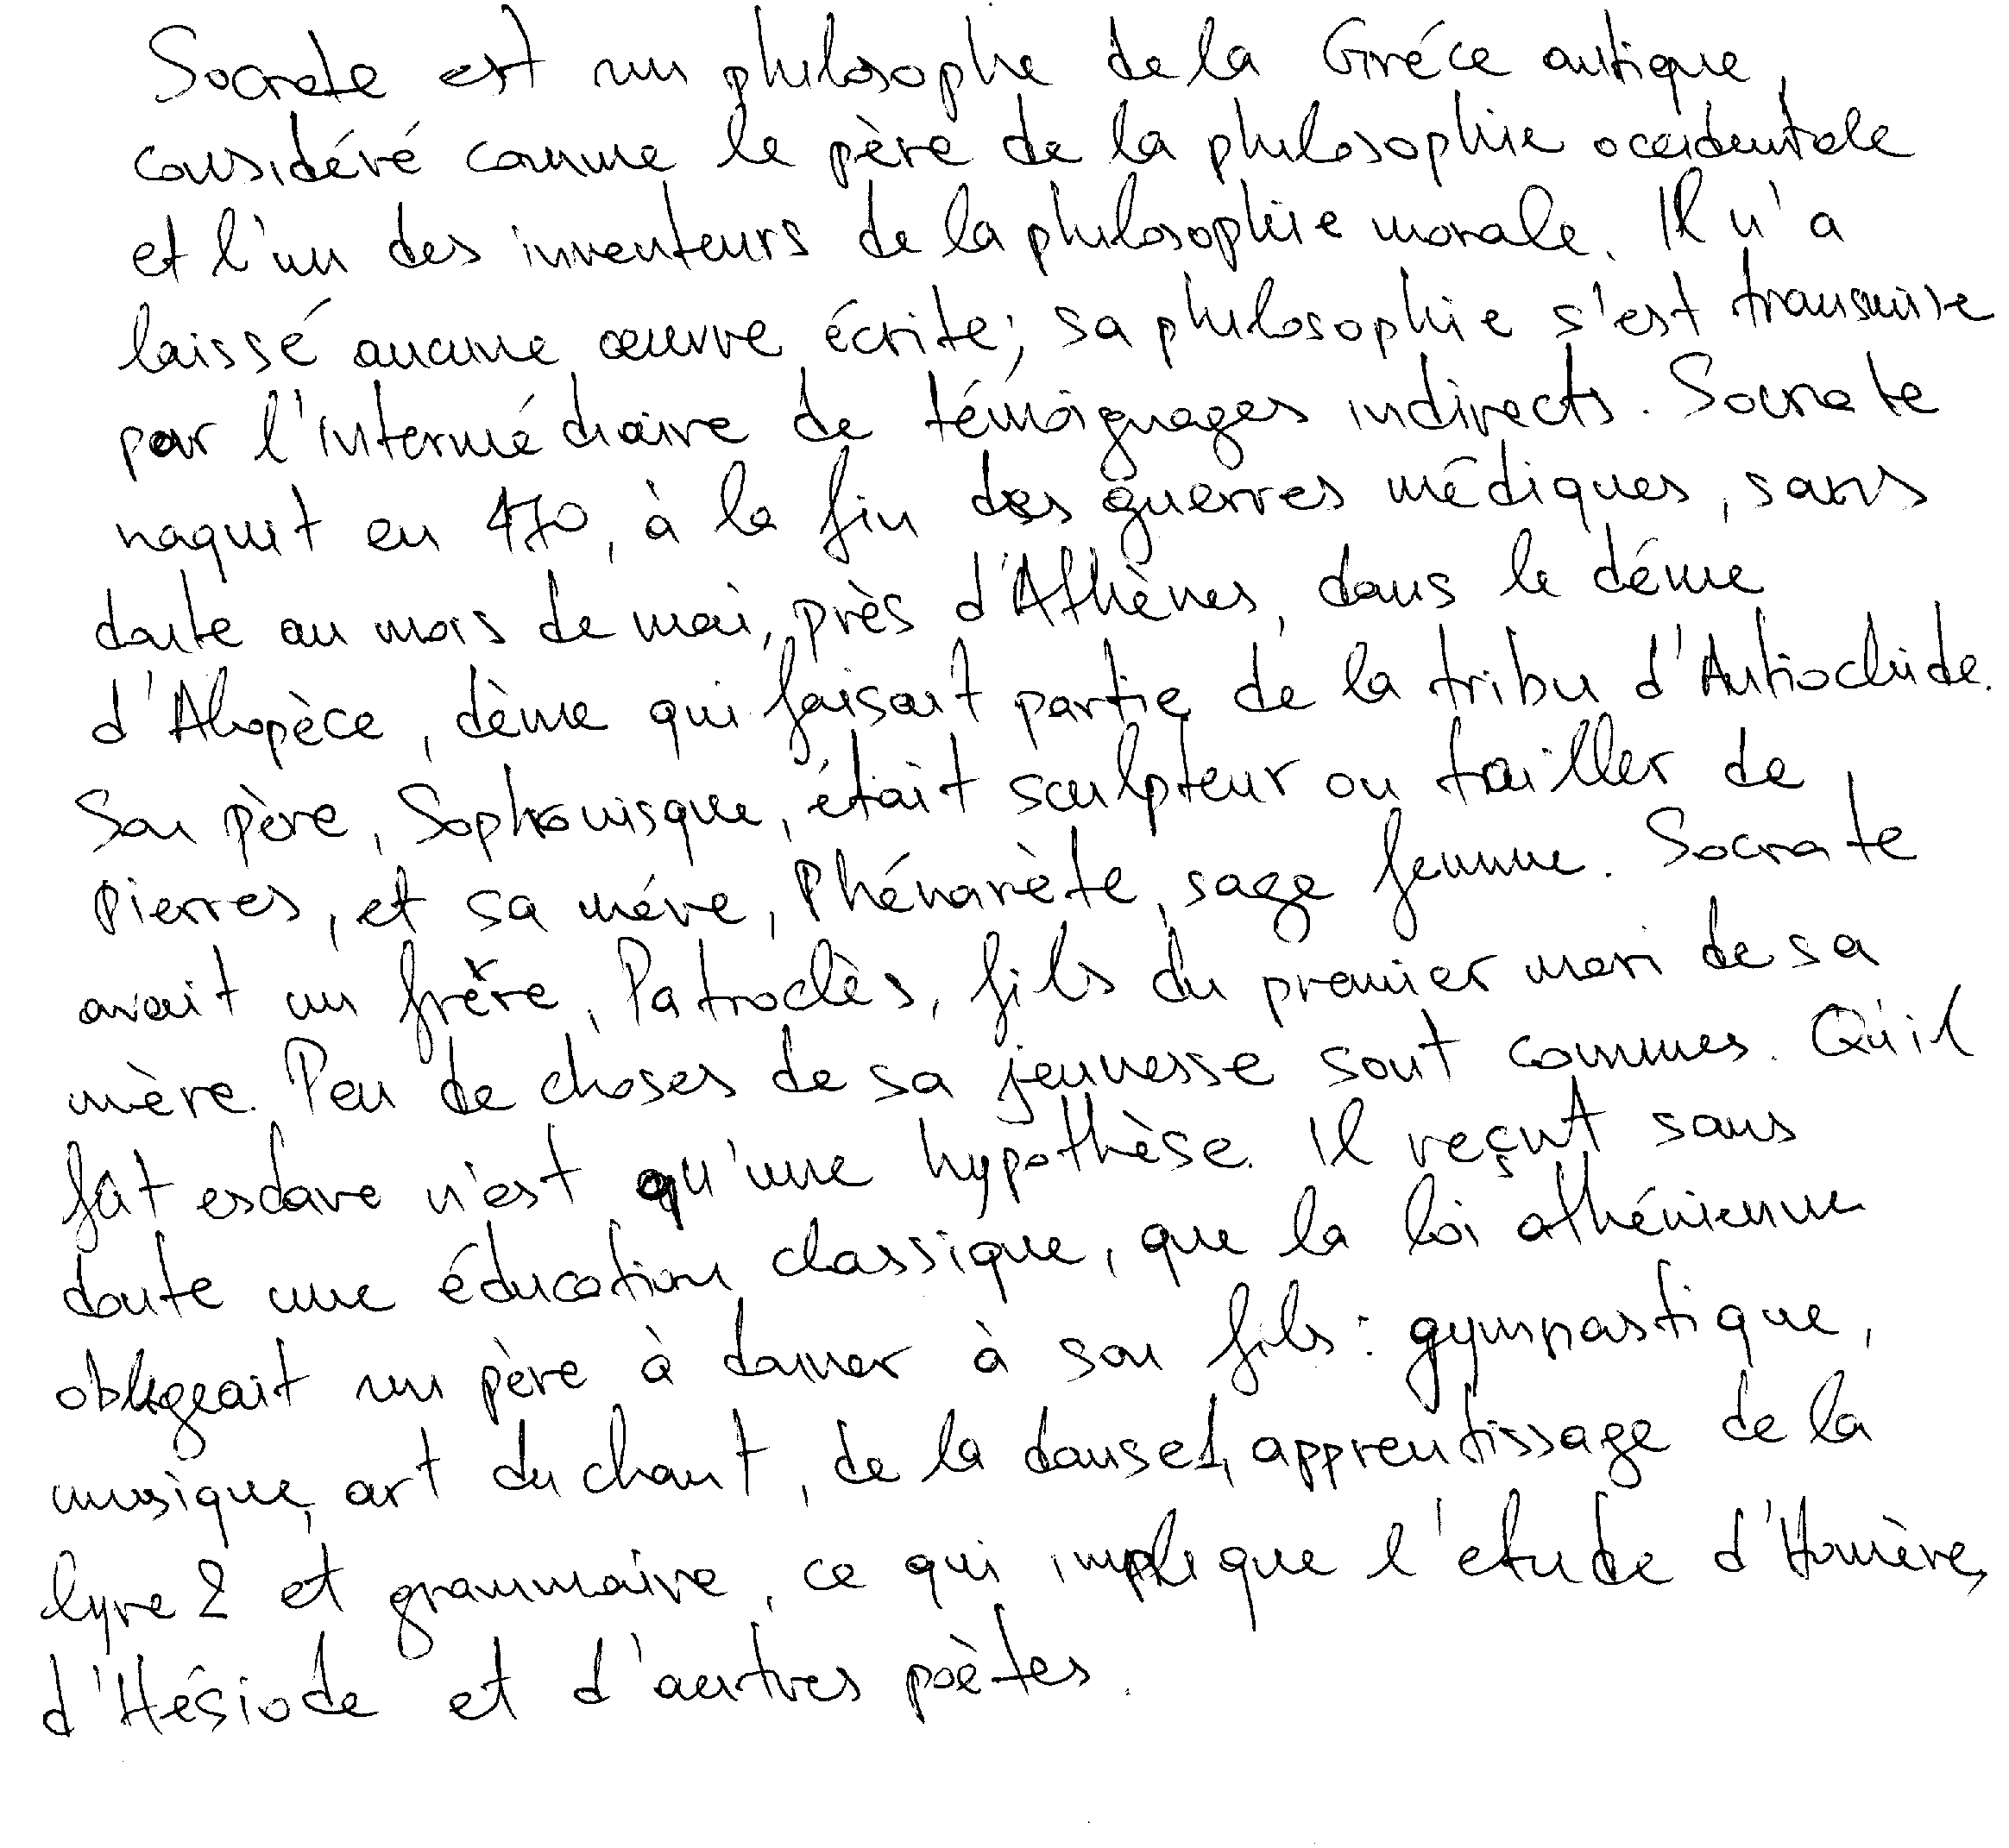 Socrate est un philosophe de la Gréce antique,
considéré comme le père de la philosophie occidentale
et l'un des inventeurs de la philosophie morale. Il n'a
laissé aucune œuvre écrite; sa philosophie s'est transmise
par l'intermédiaire de témoignages indirects. Socrate
naquit en 470, à la fin des guerres médiques, sans
doute au mois de mai, près d'Athènes, dans le déme
d'Alopèce, dème qui faisait partie de la tribu d'Antiochide.
Son père, Sophronisque, était sculpteur ou tailler de
pierres, et sa mére, Phénarète, sage femme. Socrate
avait un frère, Patroclès, fils du premier mari de sa
mère. Peu de choses de sa jeunesse sont connues. Qu'il
fût esclave n'est qu'une hypothèse. Il reçut sans
doute une éducation classique, que la loi athénienne
obligeait un père à donner à son fils: gymnastique,
musique, art du chant, de la danse1, apprentissage de la
lyre 2 et grammaire, ce qui implique l'etude d'Homère,
d'Hésiode et d'autres poètes.